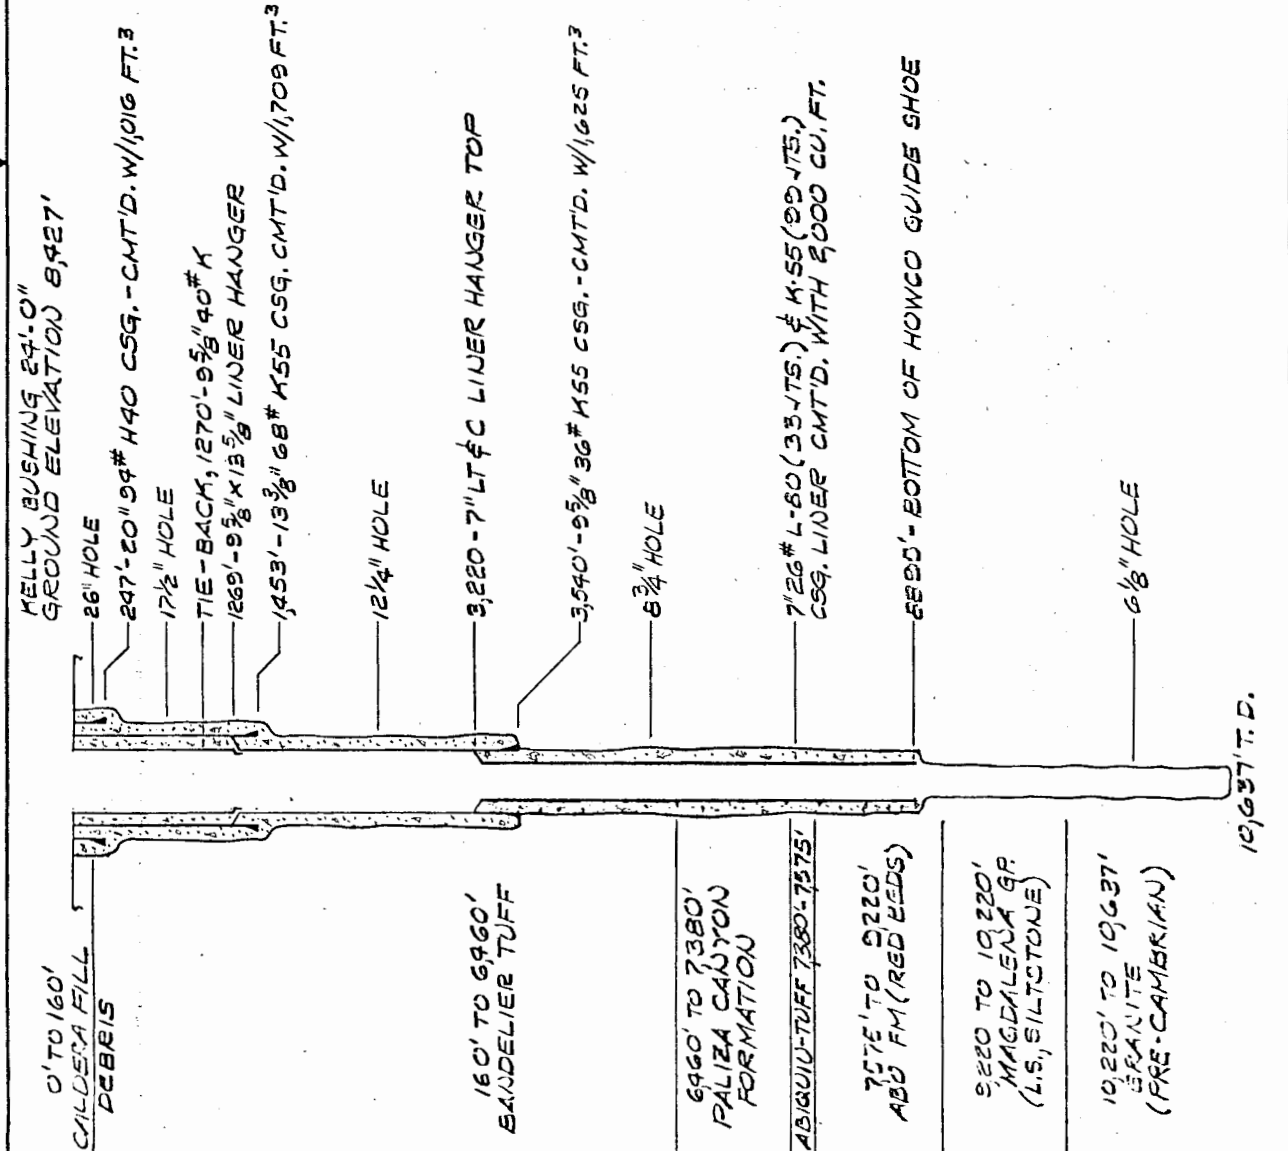 KELLY BUSHING 24'-0"
GROUND ELEVATION 8,427'
26" HOLE
247'-20" 94# H40 CSG.-CMT'D. W/1,016 FT.³
17½" HOLE
TIE-BACK, 1270'-9⅝" 40# K
1269'-9⅝" X 13⅝" LINER HANGER
1,453'-13⅜" 68# K55 CSG. CMT'D. W/1,709 FT.³
12¼" HOLE
3,220-7" LT & C LINER HANGER TOP
3,540'-9⅝" 36# K55 CSG.-CMT'D. W/1,625 FT.³
8¾" HOLE
7" 26# L-80 (33 JTS.) & K-55 (99 JTS.)
CSG. LINER CMT'D. WITH 2,000 CU. FT.
BOTTOM OF HOWCO GUIDE SHOE
6⅛" HOLE
10,637' T.D.
0' TO 160'
CALDERA FILL
DEBRIS
160' TO 6,460'
BANDELIER TUFF
6,460' TO 7,380'
PALIZA CANYON
FORMATION
ABIQUIU-TUFF 7380'-7575'
7575' TO 9,220'
ABO FM (RED BEDS)
9,220 TO 10,220'
MAGDALENA GP.
(L.S., SILTSTONE)
10,220' TO 10,637'
GRANITE
(PRE-CAMBRIAN)